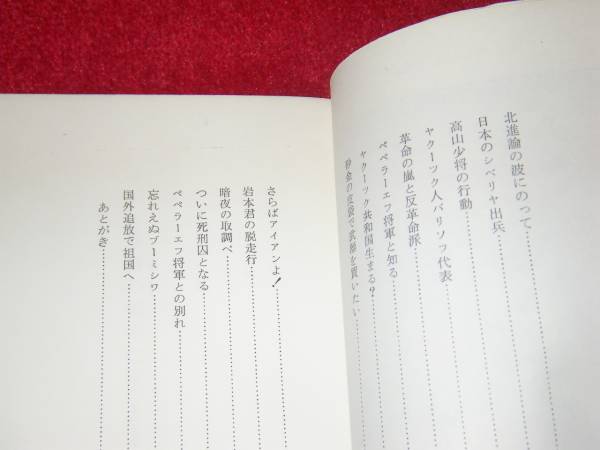 北進論の波にのって
日本のシベリヤ出兵
高山少将の行動
ヤクーツク人バリソフ代表
革命の嵐と反革命派
ペペラーエフ将軍と知る
ヤクーツク共和国生まる?
砂金の皮袋で武器を買いたい
さらばアイアンよ!
岩本君の脱走行
暗夜の取調べ
ついに死刑囚となる
ペペラーエフ将軍との別れ
忘れえぬブーミシワ
国外追放で祖国へ
あとがき